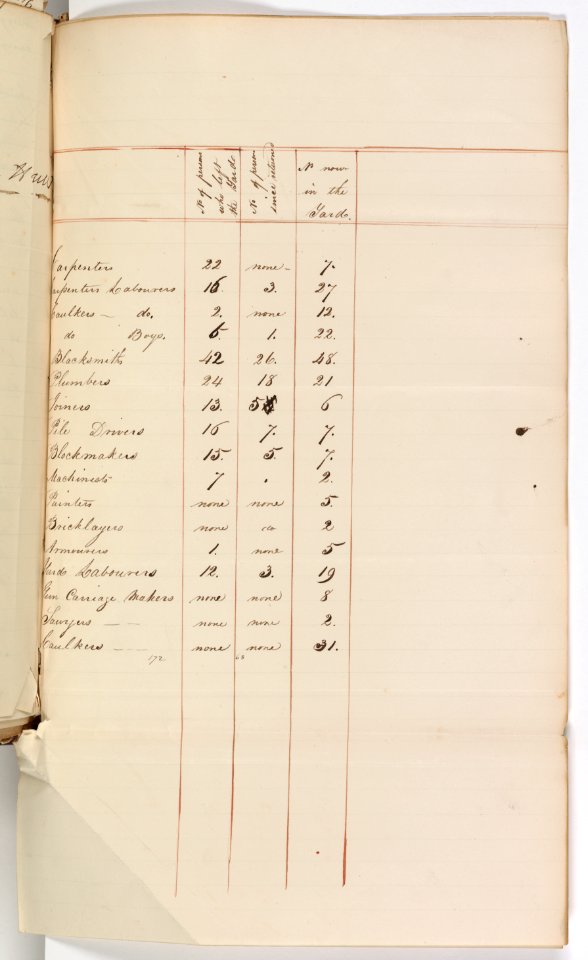 No of persons who left the Yards | No of persons since returned | No now in the Yards.
Carpenters 22 none 7.
Carpenters Labourers 16 3. 27
Caulkers — do. 2. none 12.
do Boys. 1. 22.
Blacksmiths 42 26. 48.
Plumbers 24 18 21
Joiners 13. 5 6
Pile Drivers 16 7. 7.
Blockmakers 15. 5. 7.
Machinists 7 . 2.
Painters none none 5.
Bricklayers none do 2
Armourers 1. none 5
Yards Labourers 12. 3. 19
Gun Carriage Makers none none 8
Sawyers — — none none 2.
Caulkers — — none none 31.
172 63